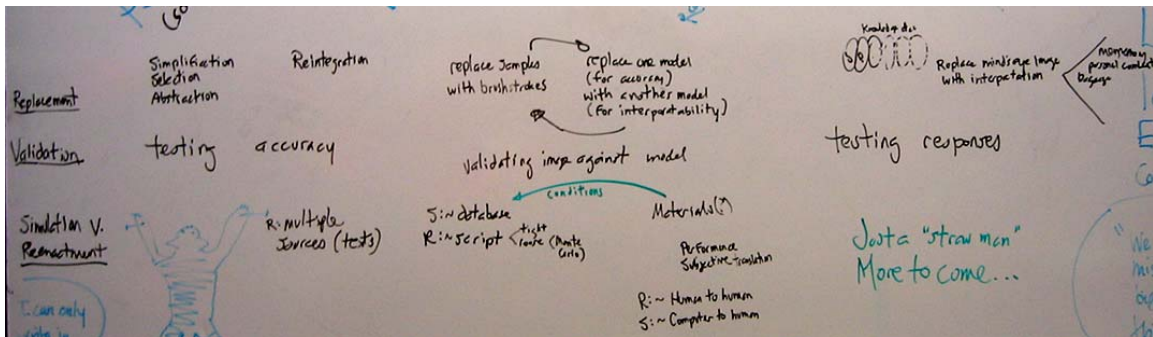 Simplification
Selection
Abstraction
Reintegration
replace samples
with brushstrokes
replace one model
(for accuracy)
with another model
(for interpretability)
Knowledge
Replace mindseye image
with interpretation
personal
Replacement
Validation
testing accuracy
validating image against model
testing responses
Simulation V.
Reenactment
R: multiple
sources (tests)
conditions
S:~ database
R:~ script
tight
route (Monte
Carlo)
Materials(?)
Performance
Subjective translation
R:~ Human to human
S:~ Computer to human
Just a "straw man"
More to come...
I can only
write in
"We